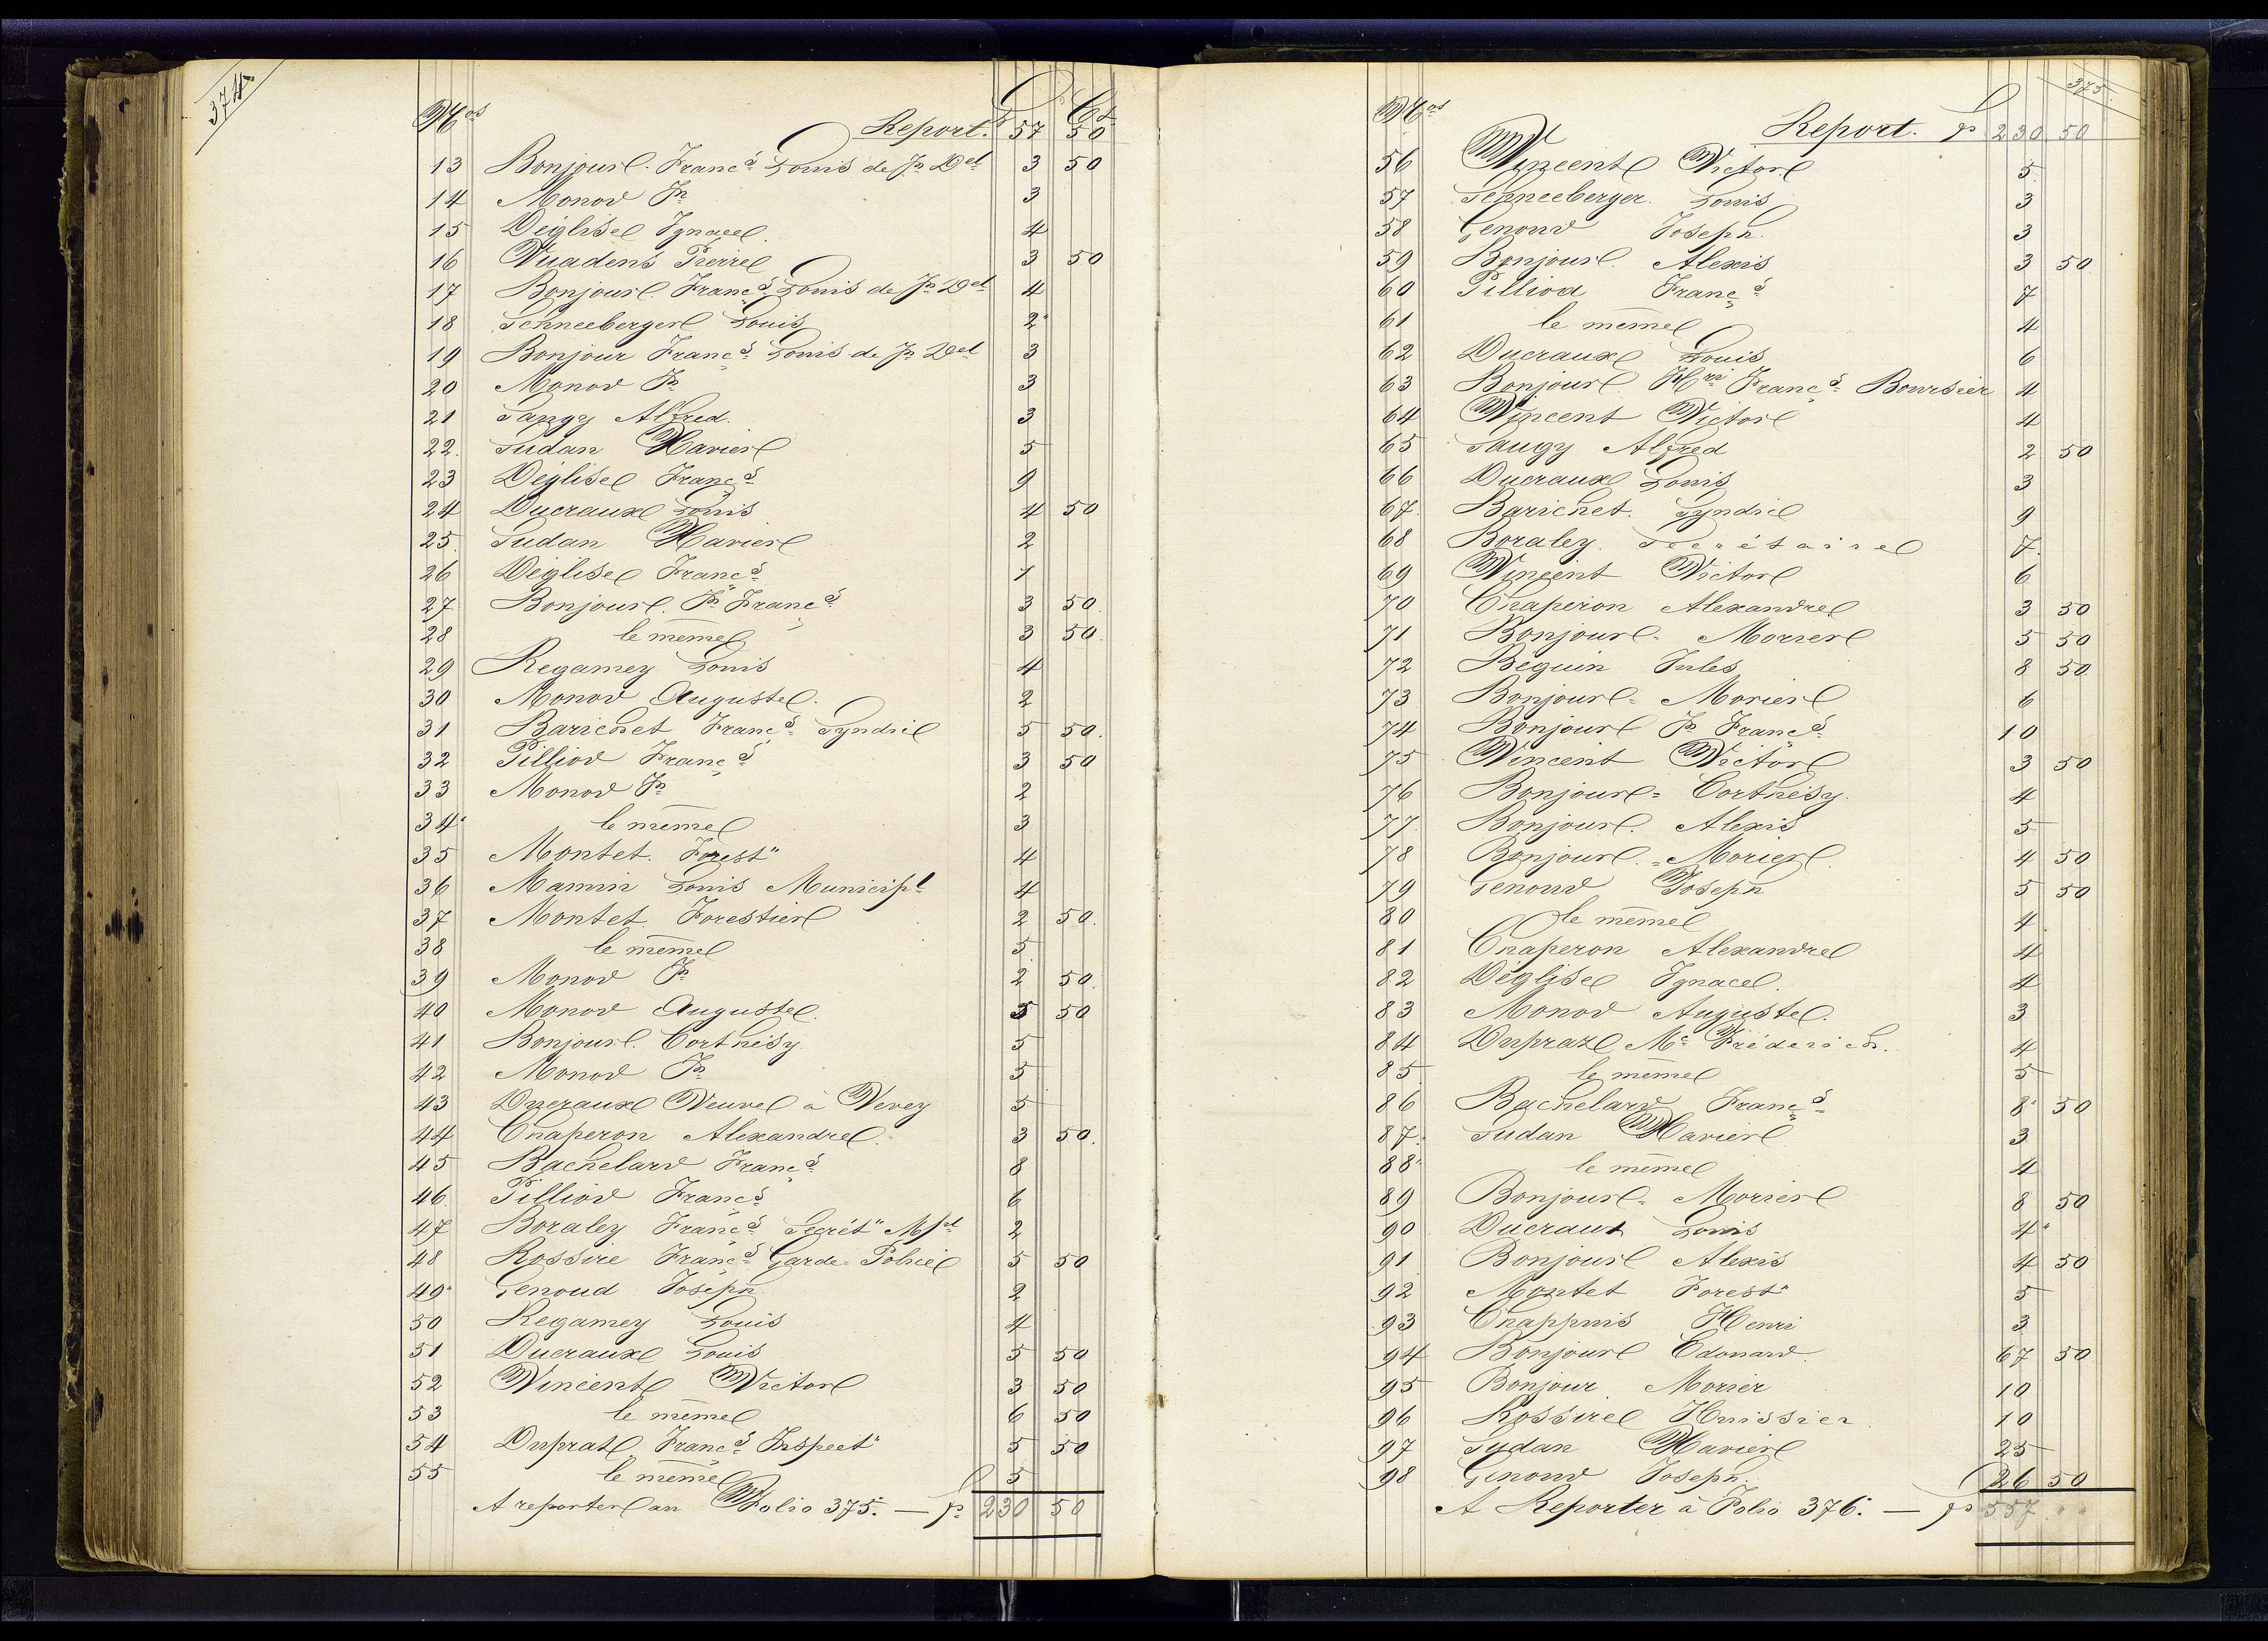 374
Nos Cs
Report. 57 50
13 Bonjour Francs Louis de Jn Del 3 50
14 Monod Jn 3
15 Déglise Ignace 4
16 Vuadens Pierre 3 50
17 Bonjour Francs Louis de Jn Del 4
18 Schneeberger Louis 2
19 Bonjour Francs Louis de Jn Del 3
20 Monod Jn 3
21 Saugy Alfred. 3
22. Sudan Xavier 5
23 Déglise Francs 9
24 Ducraux Louis 4 50
25. Sudan Xavier 2
26 Déglise Francs 7
27 Bonjour. Jn Francs 3 50.
28 le même 3 50.
29 Regamey Louis 4
30 Monod Auguste. 2
31 Barichet Francs Syndic 5 50.
32 Pilliod Francs 3 50
33 Monod Jn 2
34 le même 3
35 Montet. Forest" 4
36 Mamin Louis Municipl 4
37 Montet Forestier 2 50.
38 le même 5
39 Monod Jn 2 50.
40 Monod Auguste. 5 50
41 Bonjour. Corthésy 5
42 Monod Jn 5
43 Ducraux Veuve à Vevey 5
44 Chaperon Alexandre. 3 50.
45 Bachelard Francs 8
46. Pilliod Francs 6
47 Boraley Francs Secrét" Mpl 2
48 Rossire Francs Garde-Police 5 50
49 Genoud Joseph 2
50 Regamey Louis 4
51 Ducraux Louis 5 50
52 Vincent Victor 3 50
53 le même 6 50
54 Dupraz Francs Inspect" 5 50
55 le même 5
A reporter au Folio 375. — fs 230 50
375.
Nos
Report. fs 230 50
56 Vincent Victor 5
57 Schneeberger Louis 3
58 Genoud Joseph. 3
59 Bonjour. Alexis 3 50
60 Pilliod Francs 7
61 le même 4
62 Ducraux Louis 6
63 Bonjour Hri Francs Boursier 4
64 Vincent Victor 4
65 Saugy Alfred 2 50
66 Ducraux Louis 3
67. Barichet. Syndic 9
68 Boraley. Secrétaire 7.
69 Vincent Victor 6
70 Chaperon Alexandre 3 50
71 Bonjour- Morier 5 50
72 Beguin Jules 8 50
73 Bonjour- Morier 6
74 Bonjour Jn Francs 10
75 Vincent Victor 3 50
76 Bonjour= Corthésy. 4
77. Bonjour. Alexis 5
78 Bonjour.- Morier 4 50
79 Genoud Joseph 5 50
80 le même 4
81 Chaperon Alexandre 4
82 Déglise Ignace. 4
83 Monod Auguste. 3
84 Dupraz Mc Fréderich. 4
85 le même 5
86 Bachelard Francs 8 50
87. Sudan Xavier 3
88 le même 4
89 Bonjour- Morier 8 50
90 Ducraux Louis 4
91 Bonjour Alexis 4 50
92 Montet Forest" 5
93 Chappuis Henri 3
94 Bonjour Edouard. 67 50
95 Bonjour Morier 10
96 Rossire Huissier 10
97 Sudan Xavier 25
98 Genoud Joseph. 26 50
A Reporter à Folio 376. — fs 557 "